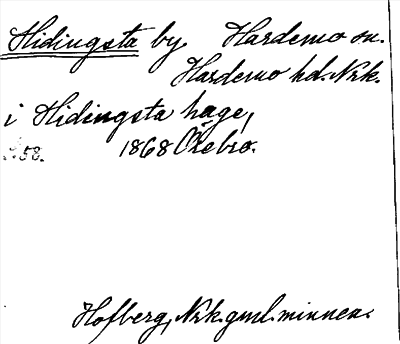 Hidingsta by Hardemo sn.
Hardemo hd. Nrk.
i Hidingsta hage,
s. 58. 1868 Örebro.
Hofberg, Nrk. gml. minnen.